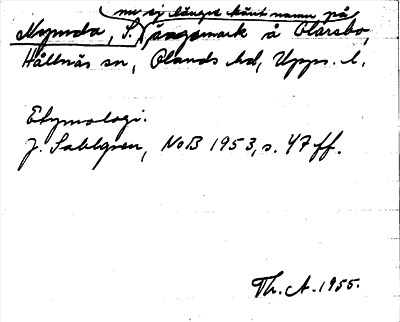 nu ej längre känt namn på
Mynda, S. ängsmark å Olarsbo,
Hållnäs sn, Olands hd, Upps. l.
Etymologi.
J. Sahlgren, NoB 1953, s. 47 ff.
Th. A. 1955.